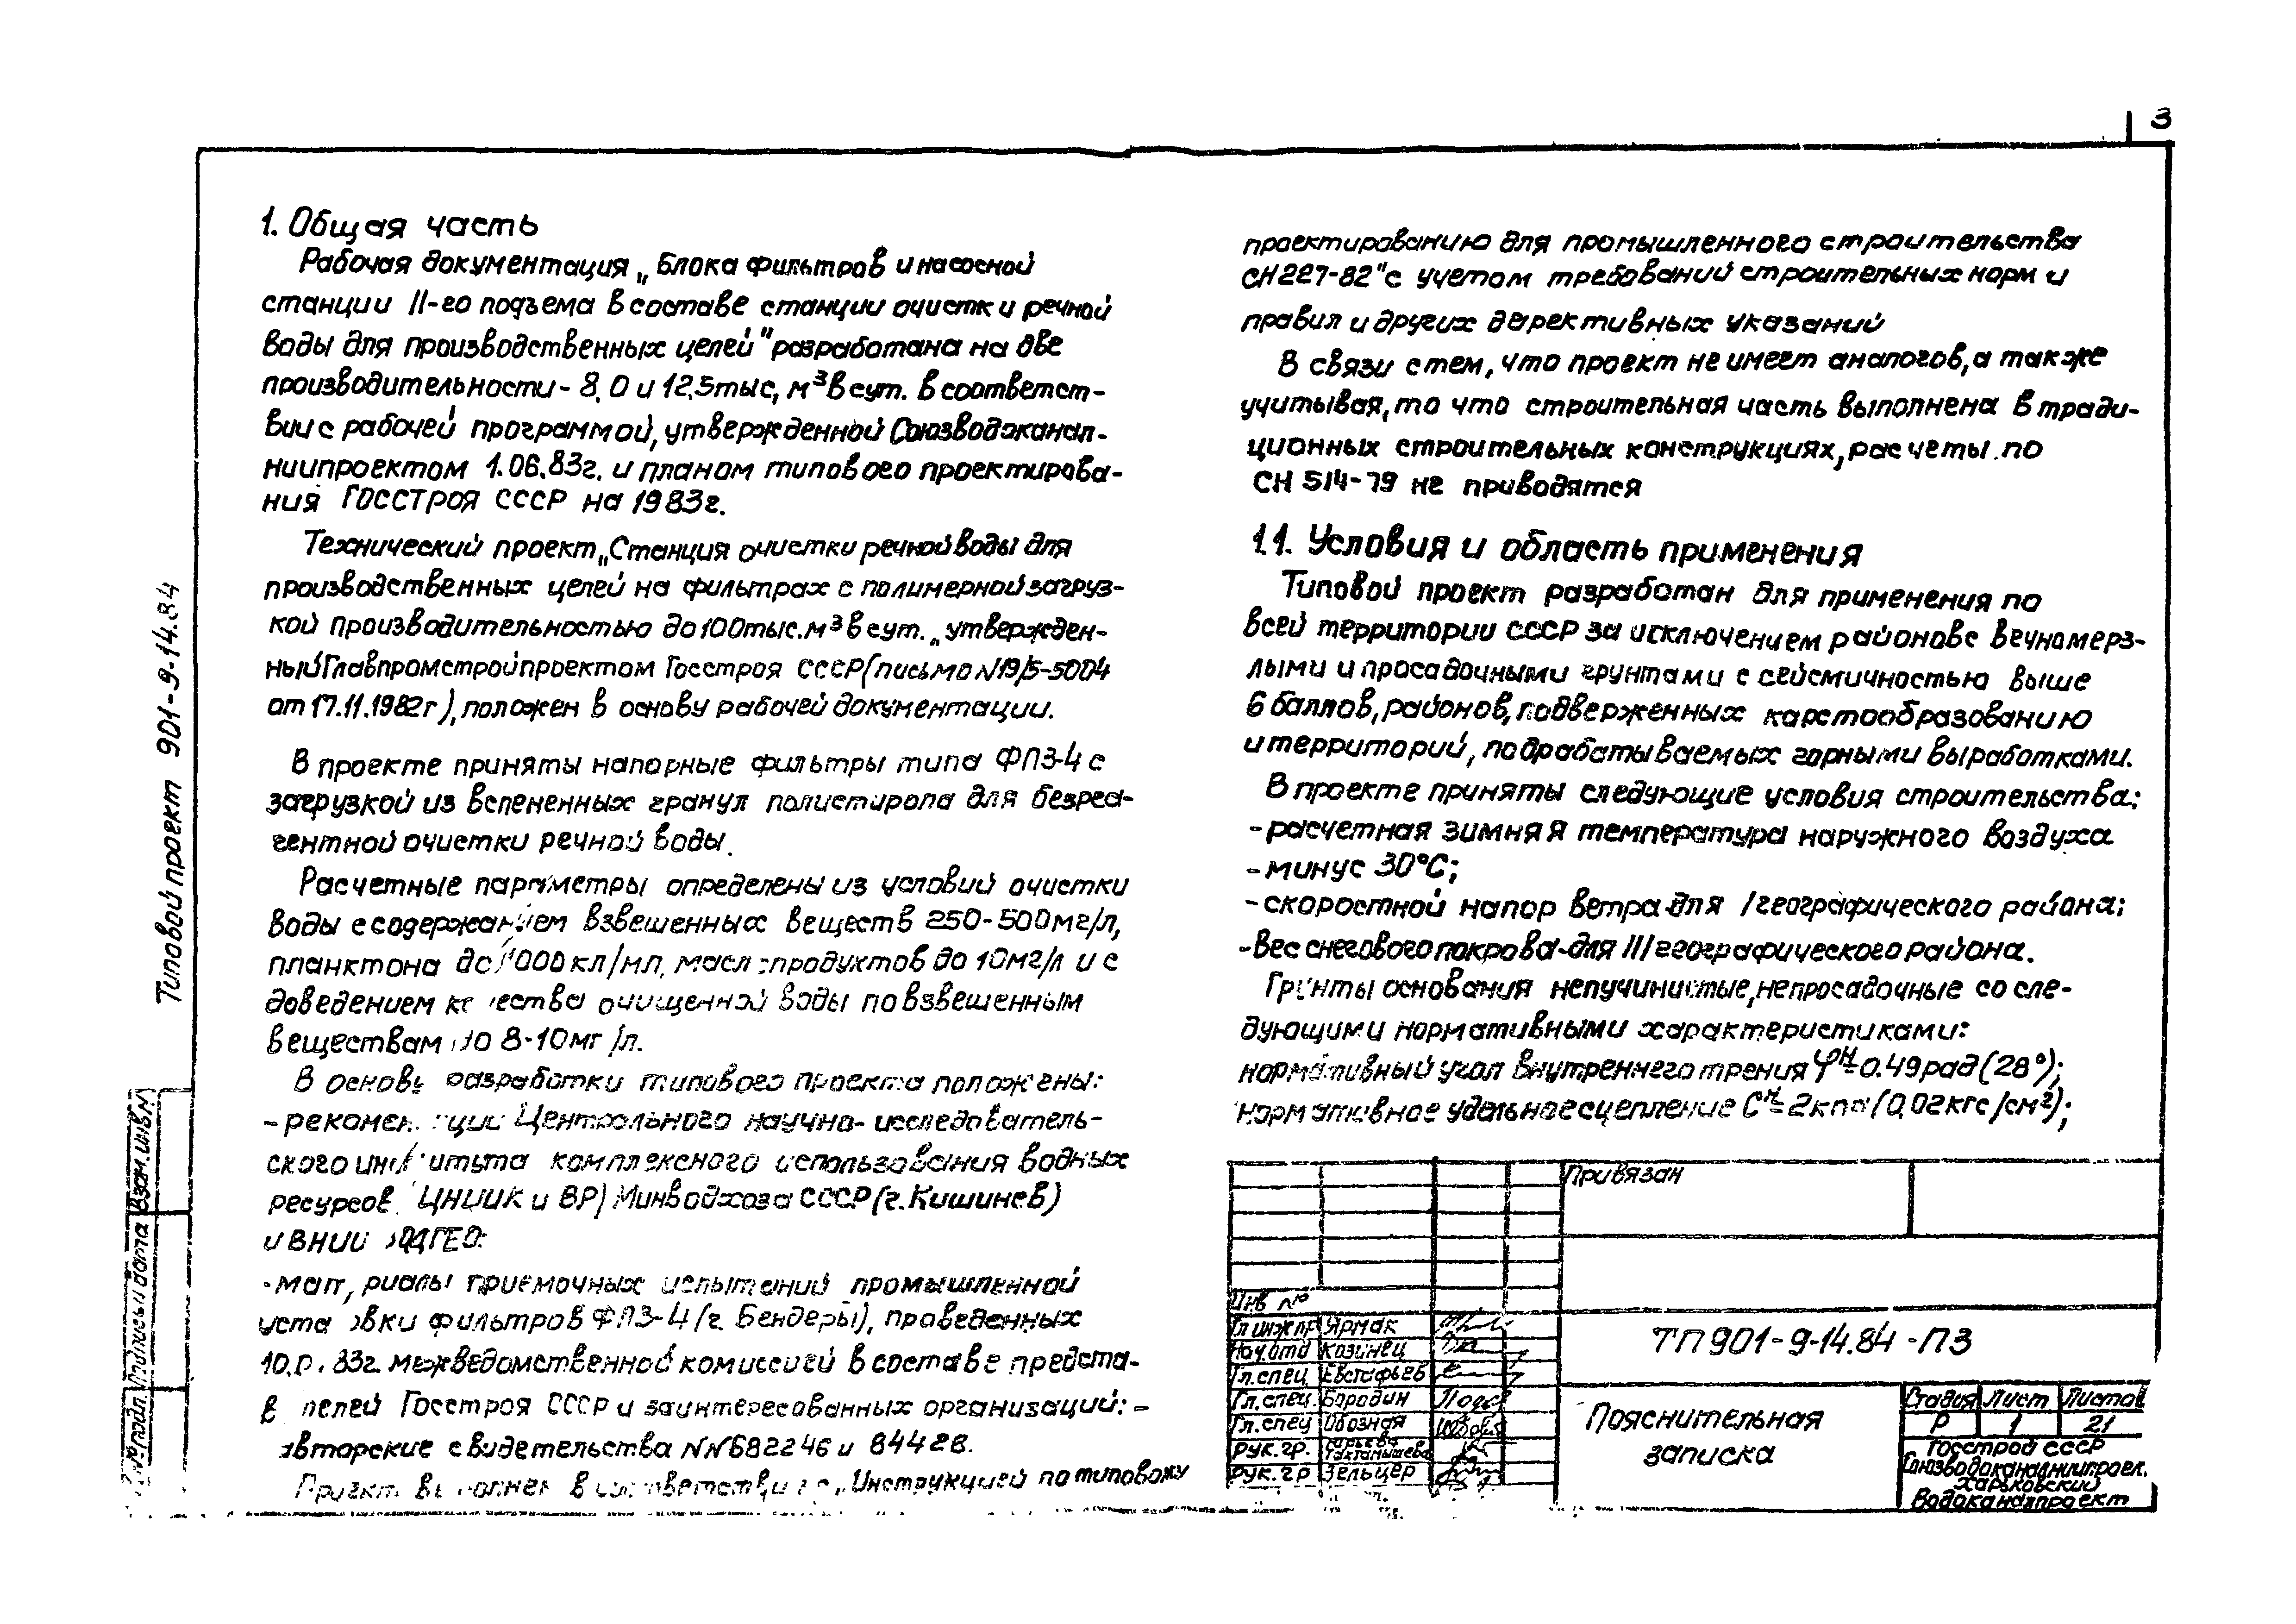 3
1. Общая часть
Рабочая документация „Блока фильтров и насосной
станции II-го подъема в составе станции очистки речной
воды для производственных целей" разработана на две
производительности - 8,0 и 12,5 тыс, м³ в сут. в соответст-
вии с рабочей программой, утвержденной Союзводоканал-
ниипроектом 1.06.83г. и планом типового проектирова-
ния ГОССТРОЯ СССР на 1983г.
Технический проект „Станция очистки речной воды для
производственных целей на фильтрах с полимерной загруз-
кой производительностью до 100 тыс. м³ в сут. „ утвержден-
ный Главпромстройпроектом Госстроя СССР (письмо N19/5-5004
от 17.11.1982г), положен в основу рабочей документации.
В проекте приняты напорные фильтры типа ФПЗ-4 с
загрузкой из вспененных гранул полистирола для безреа-
гентной очистки речной воды.
Расчетные параметры определены из условий очистки
воды с содержанием взвешенных веществ 250-500мг/л,
планктона до 1000 кл/мл, маслопродуктов до 10мг/л и с
доведением качества очищенной воды по взвешенным
веществам до 8-10мг/л.
В основу разработки типового проекта положены:
- рекомендации Центрального научно-исследователь-
ского института комплексного использования водных
ресурсов (ЦНИИК и ВР) Минводхоза СССР (г. Кишинев)
и ВНИИ ВОДГЕО:
- материалы приемочных испытаний промышленной
установки фильтров ФПЗ-4 (г. Бендеры), проведенных
83г. межведомственной комиссией в составе предста-
вителей Госстроя СССР и заинтересованных организаций: -
авторские свидетельства NN682246 и 84428.
Проект выполнен в соответствии с „Инструкцией по типовому
проектированию для промышленного строительства
СН 227-82" с учетом требований строительных норм и
правил и других дерективных указаний
В связи с тем, что проект не имеет аналогов, а также
учитывая, то что строительная часть выполнена в тради-
ционных строительных конструкциях, расчеты по
СН 514-79 не приводятся
1.1. Условия и область применения
Типовой проект разработан для применения по
всей территории СССР за исключением районовс вечномерз-
лыми и просадочными грунтами с сейсмичностью выше
6 баллов, районов, подверженных карстообразованию
и территорий, подрабатываемых горными выработками.
В проекте приняты следующие условия строительства:
- расчетная зимняя температура наружного воздуха
- минус 30°С;
- скоростной напор ветра-для I географического района;
- вес снегового покрова-для III географического района.
Грунты основания непучинистые, непросадочные со сле-
дующими нормативными характеристиками:
нормативный угол внутреннего трения φᴴ=0.49 рад (28°);
нормативное удельное сцепление Сᴴ=2кпа (0,02кгс/см²);
Типовой проект 901-9-14.84
Взам.инв.N
Подпись и дата
№подл.
Привязан
Инв №
Гл инж пр Ярмак
Нач.отд Казинец
Гл.спец Евстафьев
Гл.спец. Бородин
Гл.спец Обозная
Рук.гр. Тохтамышева
Рук.гр Зельцер
ТП 901-9-14.84 -ПЗ
Пояснительная
записка
Стадия Лист Листов
Р 1 21
Госстрой СССР
Союзводоканалниипроек.
Харьковский
Водоканалпроект